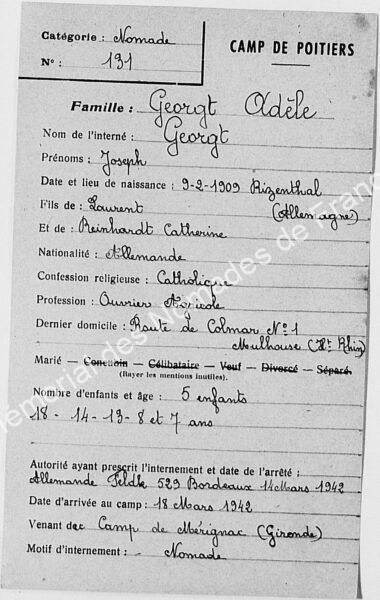 Catégorie : Nomade
N° : 131
CAMP DE POITIERS
Famille : Georgt Adèle
Nom de l'interné : Georgt
Prénoms : Joseph
Date et lieu de naissance : 9-2-1909 Rizenthal
(Allemagne)
Fils de : Laurent
Et de : Reinhardt Catherine
Nationalité : Allemande
Confession religieuse : Catholique
Profession : Ouvrier Agricole
Dernier domicile : Route de Colmar N° 1
Mulhouse (Ht Rhin)
Marié — Concubin — Célibataire — Veuf — Divorcé — Séparé.
(Rayer les mentions inutiles).
Nombre d'enfants et âge : 5 enfants
18 - 14 - 13 - 8 et 7 ans
Autorité ayant prescrit l'internement et date de l'arrêté :
Allemande Feldk 529 Bordeaux 14 Mars 1942
Date d'arrivée au camp : 18 Mars 1942
Venant de : Camp de Mérignac (Gironde)
Motif d'internement : Nomade
Memorial des Nomades de France